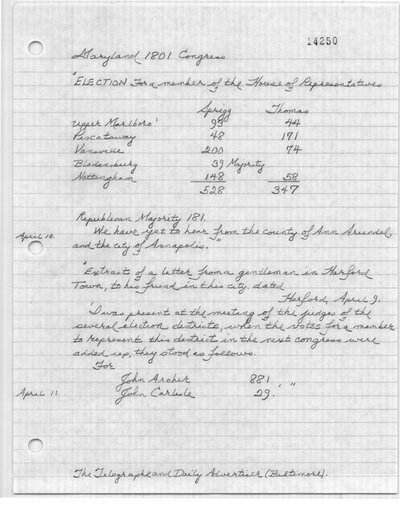 14250
Maryland 1801 Congress
"ELECTION For a member of the House of Representatives
Sprigg Thomas
Upper Marlboro' 93 44
Piscataway 48 171
Vansville 200 74
Bladensburg 39 Majority
Nottingham 148 58
528 347
Republican Majority 181.
April 10. We have yet to hear from the county of Ann Arundel,
and the city of Annapolis."
"Extract of a letter from a gentleman in Harford
Town, to his friend in this city, dated
Harford, April 9.
'I was present at the meeting of the judges of the
several election districts, when the votes for a member
to represent this district in the next congress were
added up, they stood as follows.
For
John Archer 881
April 11 John Carlisle 29.'"
The Telegraphe and Daily Advertiser (Baltimore).